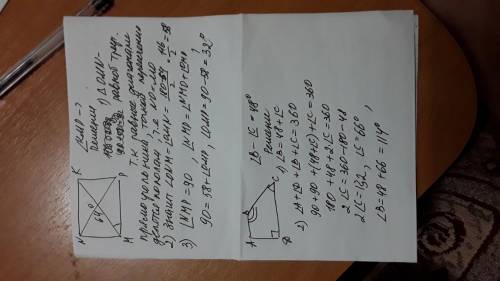 N
K
64°
M
P
∠KMP - ?
Решение
1) △ONM -
равноб. треуг.
т.к равные диагонали
прямоугольника точкой пересечения
делятся пополам, т.е NO = MO
2) Значит ∠ONM = ∠OMN = (180-64)/2 = 116/2 = 58
3) ∠NMP = 90, ∠NMP = ∠NMO + ∠OMP
90 = 58 + ∠OMP, ∠OMP = 90 - 58 = 32°
A
B
C
D
∠B - ∠C = 48°
Решение
1) ∠B = 48 + ∠C
2) ∠A + ∠D + ∠B + ∠C = 360
90 + 90 + (48 + ∠C) + ∠C = 360
180 + 48 + 2∠C = 360
2∠C = 360 - 180 - 48
2∠C = 132, ∠C = 66°
∠B = 48 + 66 = 114°